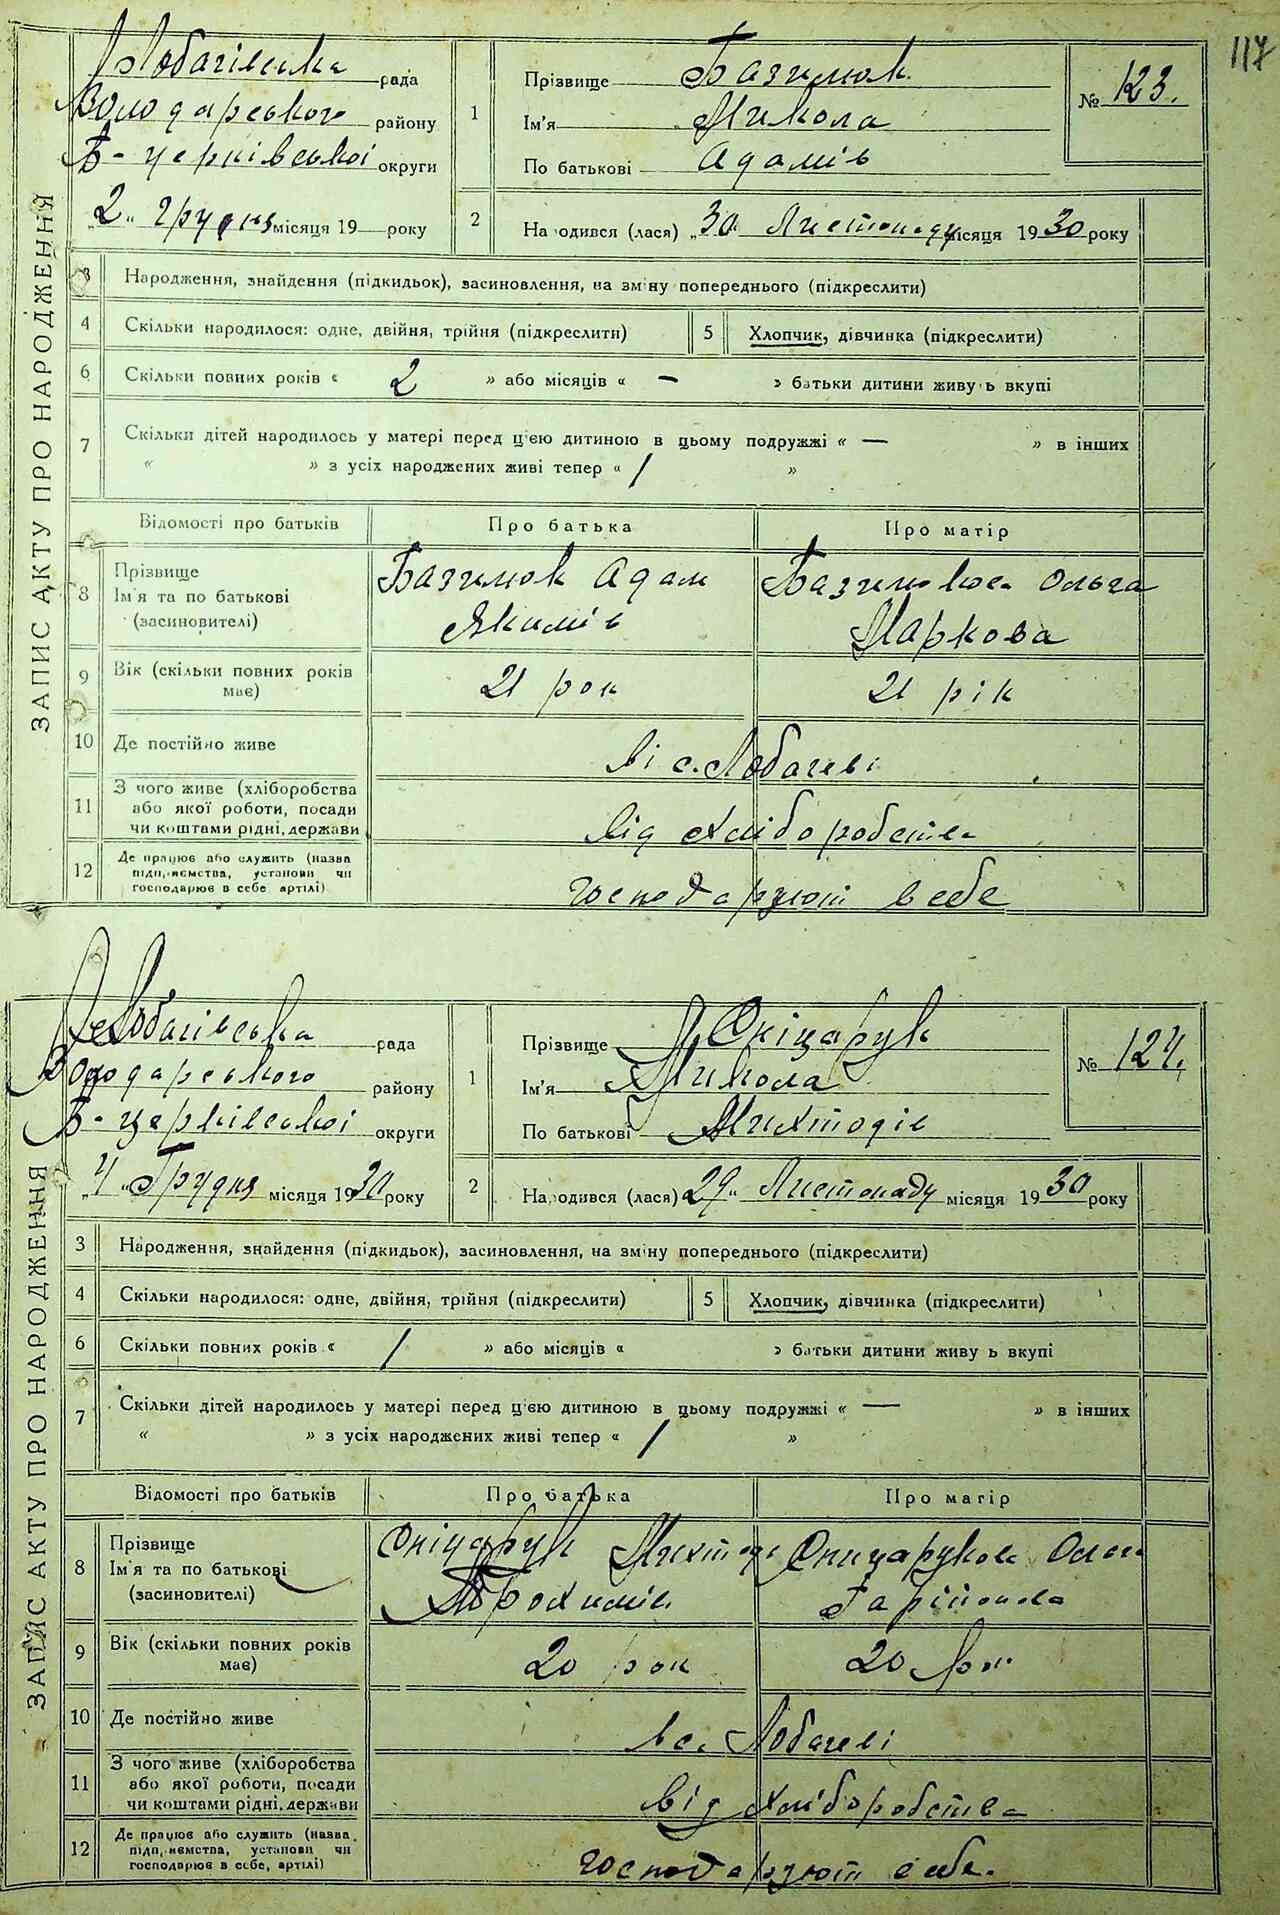 117
ЗАПИС АКТУ ПРО НАРОДЖЕННЯ
Лобачівська рада
Володарського району
Б-церківської округи
"2" грудня місяця 19 року
1
Прізвище Базилюк
Ім'я Микола
По батькові Адамів
№ 123.
2
Народився (лася) "30" Листопаду місяця 1930 року
3 Народження, знайдення (підкидьок), засиновлення, на зміну попереднього (підкреслити)
4 Скільки народилося: одне, двійня, трійня (підкреслити) 5 Хлопчик, дівчинка (підкреслити)
6 Скільки повних років « 2 » або місяців « — » батьки дитини живуть вкупі
7 Скільки дітей народилось у матері перед цією дитиною в цьому подружжі « — » в інших
« » з усіх народжених живі тепер « / »
Відомості про батьків Про батька Про матір
8 Прізвище
Ім'я та по батькові
(засиновителі)
Базилюк Адам
Якимів
Ольга
Маркова
9 Вік (скільки повних років має) 21 рок 21 рік
10 Де постійно живе ві с. Лобачеві
11 З чого живе (хліборобства або якої роботи, посади чи коштами рідні, держави від хліборобства
12 Де працює або служить (назва підприємства, установи чи господарює в себе артілі) господарюют в себе
ЗАПИС АКТУ ПРО НАРОДЖЕННЯ
Лобачівська рада
Володарського району
Б-церківської округи
"4" Грудня місяця 1930 року
1
Прізвище Оніщарук
Ім'я Микола
По батькові Михтодів
№ 124.
2
Народився (лася) "29" Листопаду місяця 1930 року
3 Народження, знайдення (підкидьок), засиновлення, на зміну попереднього (підкреслити)
4 Скільки народилося: одне, двійня, трійня (підкреслити) 5 Хлопчик, дівчинка (підкреслити)
6 Скільки повних років « / » або місяців « » батьки дитини живуть вкупі
7 Скільки дітей народилось у матері перед цією дитиною в цьому подружжі « — » в інших
« » з усіх народжених живі тепер « / »
Відомості про батьків Про батька Про матір
8 Прізвище
Ім'я та по батькові
(засиновителі)
Трохимів
9 Вік (скільки повних років має) 20 рок 20 рок
10 Де постійно живе в с. Лобачеві
11 З чого живе (хліборобства або якої роботи, посади чи коштами рідні, держави від хліборобства
12 Де працює або служить (назва підприємства, установи чи господарює в себе, артілі) господарюют в себе.